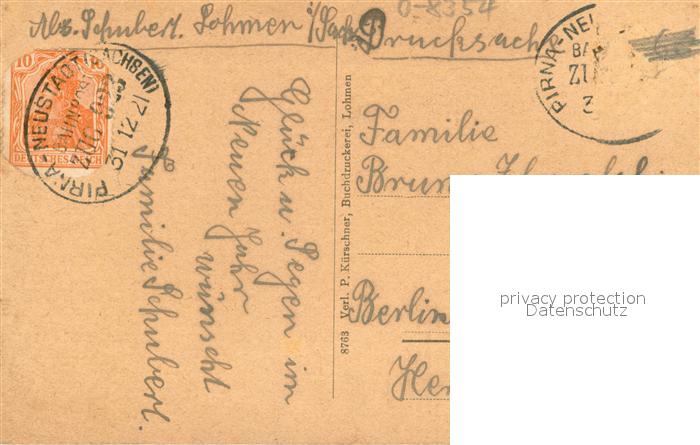 O-8354
Abs. Schubert. Lohmen i/Sachs.
Drucksache
10
DEUTSCHES REICH
PIRNA-NEUSTADT (SACHSEN)
BAHNPOST
ZUG
31 12 21
PIRNA-NEU
BA
ZU
3
Glück u. Segen im
Neuen Jahr
wünscht
Familie Schubert.
8763 Verl. P. Kürschner, Buchdruckerei, Lohmen
Familie
Berlin
privacy protection
Datenschutz